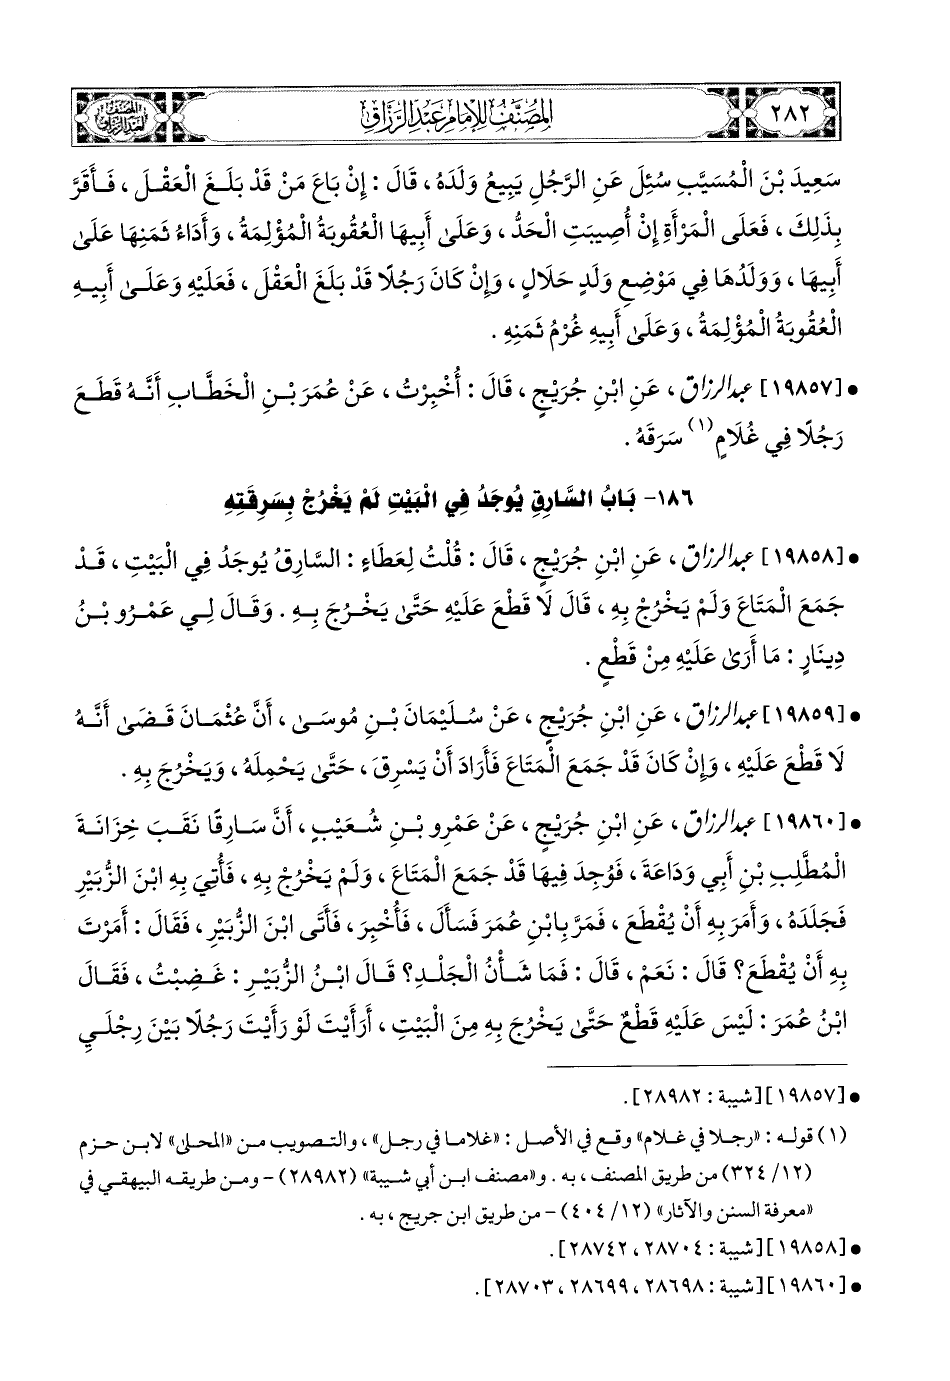 ٢٨٢
المصنف للإمام عبد الرزاق
المصنف لعبد الرزاق
سَعِيدَ بْنَ الْمُسَيَّبِ سُئِلَ عَنِ الرَّجُلِ يَبِيعُ وَلَدَهُ ، قَالَ : إِنْ بَاعَ مَنْ قَدْ بَلَغَ الْعَقْلَ ، فَأَقَرَّ
بِذَلِكَ ، فَعَلَى الْمَرْأَةِ إِنْ أُصِيبَتِ الْحَدُّ ، وَعَلَى أَبِيهَا الْعُقُوبَةُ الْمُؤْلِمَةُ ، وَأَدَاءُ ثَمَنِهَا عَلَى
أَبِيهَا ، وَوَلَدُهَا فِي مَوْضِعِ وَلَدٍ حَلَالٍ ، وَإِنْ كَانَ رَجُلًا قَدْ بَلَغَ الْعَقْلَ ، فَعَلَيْهِ وَعَلَى أَبِيهِ
الْعُقُوبَةُ الْمُؤْلِمَةُ ، وَعَلَى أَبِيهِ غُرْمُ ثَمَنِهِ .
• [١٩٨٥٧] عبد الرزاق ، عَنِ ابْنِ جُرَيْجٍ ، قَالَ : أُخْبِرْتُ ، عَنْ عُمَرَ بْنِ الْخَطَّابِ أَنَّهُ قَطَعَ
رَجُلًا فِي غُلَامٍ (١) سَرَقَهُ .
١٨٦- بَابُ السَّارِقِ يُوجَدُ فِي الْبَيْتِ لَمْ يَخْرُجْ بِسَرِقَتِهِ
• [١٩٨٥٨] عبد الرزاق ، عَنِ ابْنِ جُرَيْجٍ ، قَالَ : قُلْتُ لِعَطَاءٍ : السَّارِقُ يُوجَدُ فِي الْبَيْتِ ، قَدْ
جَمَعَ الْمَتَاعَ وَلَمْ يَخْرُجْ بِهِ ، قَالَ لَا قَطْعَ عَلَيْهِ حَتَّى يَخْرُجَ بِهِ . وَقَالَ لِي عَمْرُو بْنُ
دِينَارٍ : مَا أَرَى عَلَيْهِ مِنْ قَطْعٍ .
• [١٩٨٥٩] عبد الرزاق ، عَنِ ابْنِ جُرَيْجٍ ، عَنْ سُلَيْمَانَ بْنِ مُوسَى ، أَنَّ عُثْمَانَ قَضَى أَنَّهُ
لَا قَطْعَ عَلَيْهِ ، وَإِنْ كَانَ قَدْ جَمَعَ الْمَتَاعَ فَأَرَادَ أَنْ يَسْرِقَ ، حَتَّى يَحْمِلَهُ ، وَيَخْرُجَ بِهِ .
• [١٩٨٦٠] عبد الرزاق ، عَنِ ابْنِ جُرَيْجٍ ، عَنْ عَمْرِو بْنِ شُعَيْبٍ ، أَنَّ سَارِقًا نَقَبَ خِزَانَةَ
الْمُطَّلِبِ بْنِ أَبِي وَدَاعَةَ ، فَوُجِدَ فِيهَا قَدْ جَمَعَ الْمَتَاعَ ، وَلَمْ يَخْرُجْ بِهِ ، فَأُتِيَ بِهِ ابْنَ الزُّبَيْرِ
فَجَلَدَهُ ، وَأَمَرَ بِهِ أَنْ يُقْطَعَ ، فَمَرَّ بِابْنِ عُمَرَ فَسَأَلَ ، فَأُخْبِرَ ، فَأَتَى ابْنَ الزُّبَيْرِ ، فَقَالَ : أَمَرْتَ
بِهِ أَنْ يُقْطَعَ؟ قَالَ : نَعَمْ ، قَالَ : فَمَا شَأْنُ الْجَلْدِ؟ قَالَ ابْنُ الزُّبَيْرِ : غَضِبْتُ ، فَقَالَ
ابْنُ عُمَرَ : لَيْسَ عَلَيْهِ قَطْعٌ حَتَّى يَخْرُجَ بِهِ مِنَ الْبَيْتِ ، أَرَأَيْتَ لَوْ رَأَيْتَ رَجُلًا بَيْنَ رِجْلَيِ
• [١٩٨٥٧] [شيبة : ٢٨٩٨٢] .
(١) قوله : «رجلا في غلام» وقع في الأصل : «غلاما في رجل» ، والتصويب من «المحلى» لابن حزم
(١٢/ ٣٢٤) من طريق المصنف ، به . و«مصنف ابن أبي شيبة» (٢٨٩٨٢) - ومن طريقه البيهقي في
«معرفة السنن والآثار» (١٢/ ٤٠٤) - من طريق ابن جريج ، به .
• [١٩٨٥٨] [شيبة : ٢٨٧٠٤ ، ٢٨٧٤٢] .
• [١٩٨٦٠] [شيبة : ٢٨٦٩٨ ، ٢٨٦٩٩ ، ٢٨٧٠٣] .